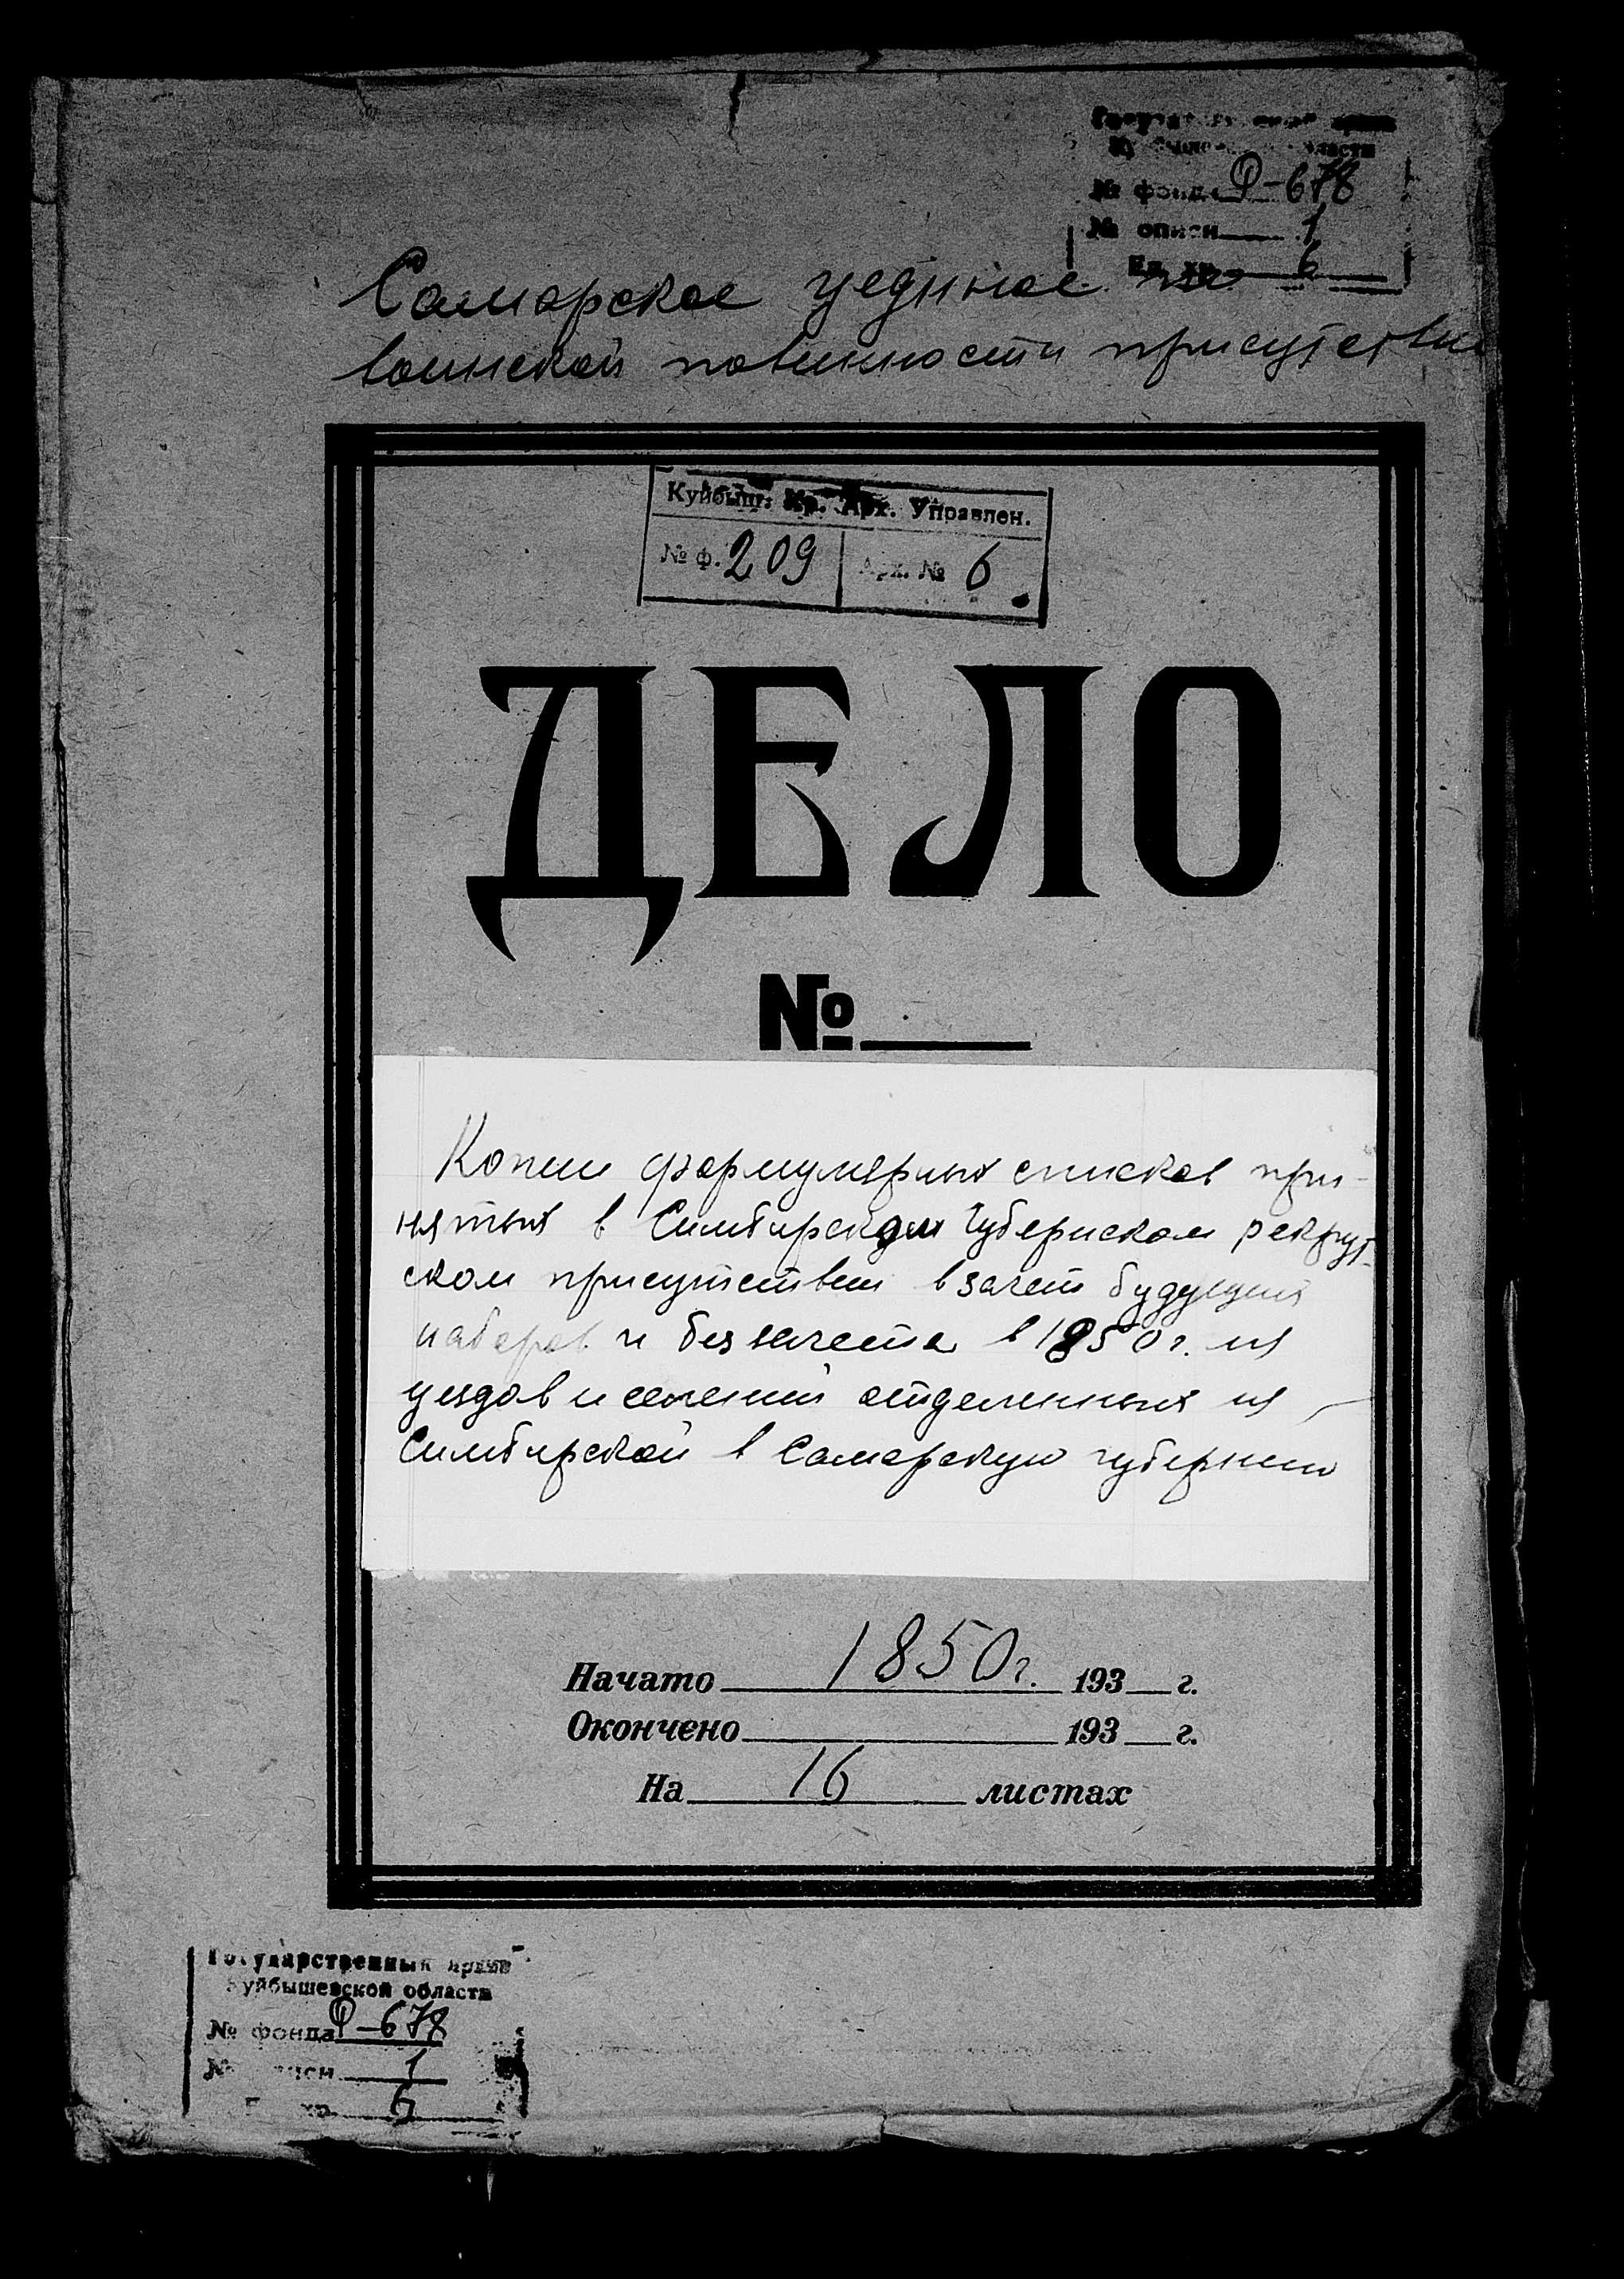 Государственный архив
Куйбышевской области
№ фонда Ф-678
№ описи 1
Ед. хр. 6
Самарское уездное по
воинской повинности присутствие
Куйбыш. Кр. Арх. Управлен.
№ ф. 209 Арх. № 6
ДЕЛО
№
Копии формулярных списков при-
нятых в Симбирском Губернском рекрут-
ском присутствии в зачет будущих
наборов и без зачета в 1850 г. из
уездов и селений отделенных из
Симбирской в Самарскую губернию
Начато 1850 г. 193 г.
Окончено 193 г.
На 16 листах
Государственный архив
Куйбышевской области
№ фонда Ф-678
№ описи 1
Ед. хр. 6